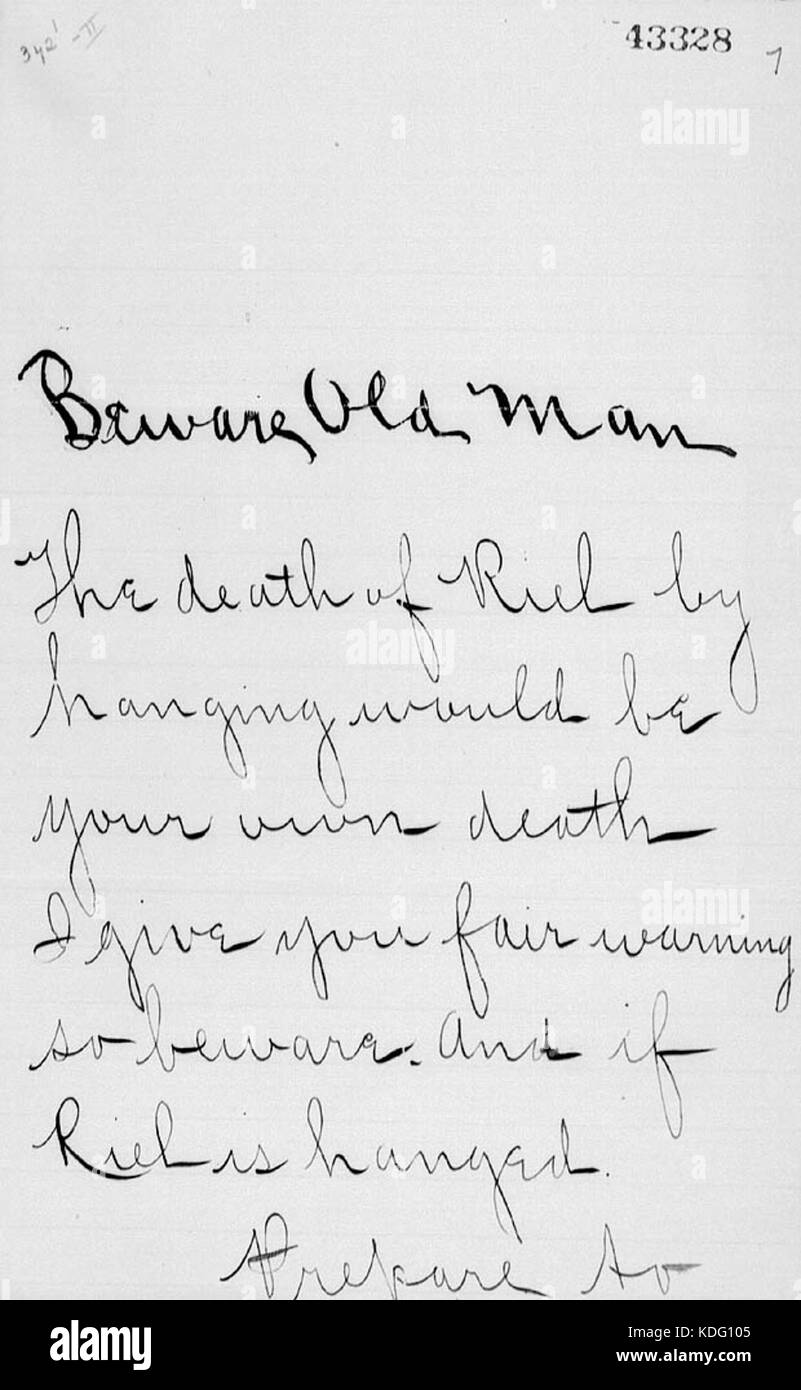 342' - II
43328
7
Beware, Old Man
The death of Riel by
hanging would be
your own death
I give you fair warning
so beware. And if
Riel is hanged.
Prepare to
alamy
Image ID: KDG105
www.alamy.com